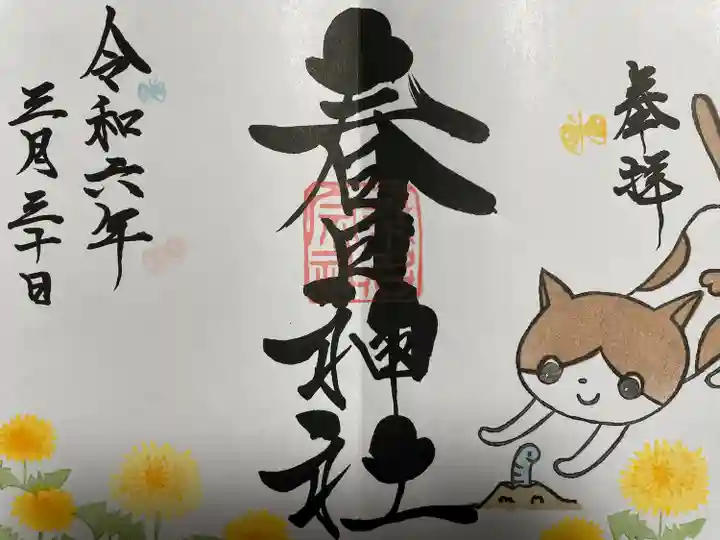 奉拝
春日神社
令和六年
三月三十日